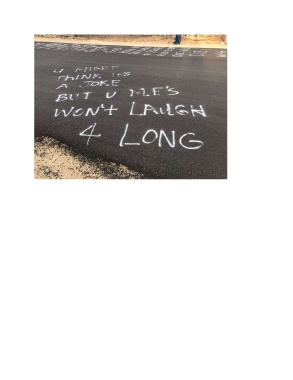 U MIGHT
THINK ITS
A JOKE
BUT U M.F.'S
WON'T LAUGH
4 LONG